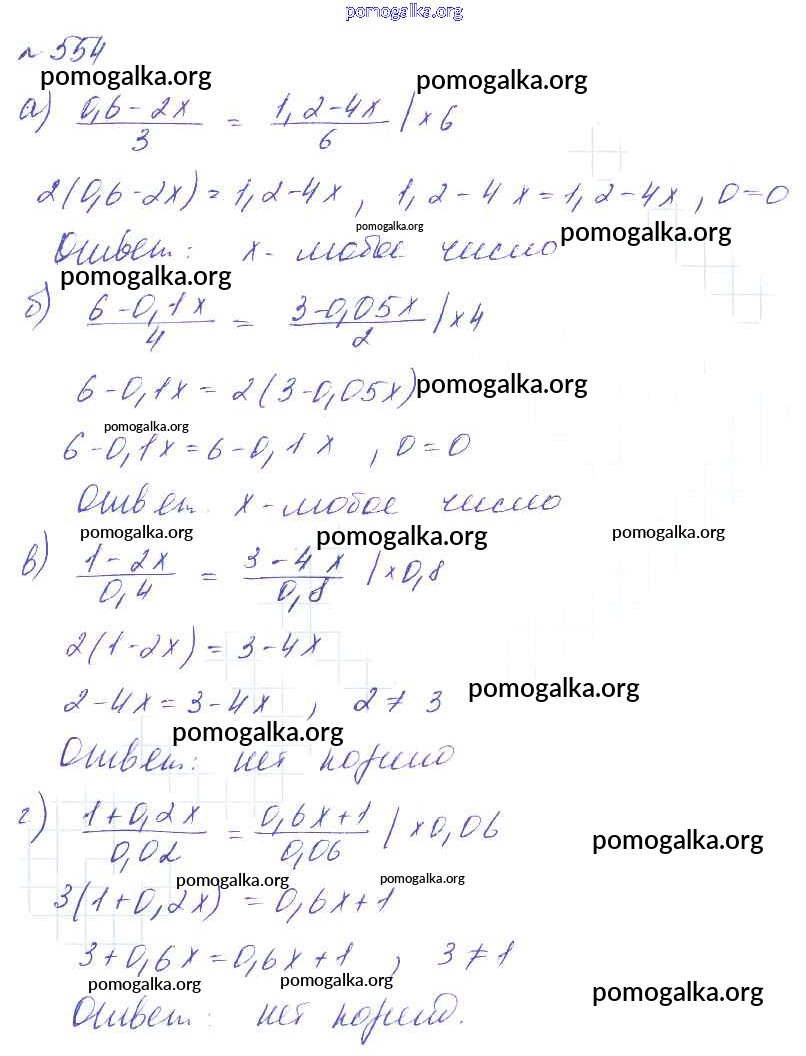 pomogalka.org
№ 554
pomogalka.org pomogalka.org
а) (0,6-2x)/3 = (1,2-4x)/6 |×6
2(0,6-2x) = 1,2-4x, 1,2-4x=1,2-4x, 0=0
pomogalka.org pomogalka.org
Ответ: x- любое число
pomogalka.org
б) (6-0,1x)/4 = (3-0,05x)/2 |×4
6-0,1x = 2(3-0,05x) pomogalka.org
pomogalka.org
6-0,1x=6-0,1x, 0=0
Ответ. x-любое число
pomogalka.org pomogalka.org pomogalka.org
в) (1-2x)/0,4 = (3-4x)/0,8 |×0,8
2(1-2x) = 3-4x
2-4x=3-4x, 2≠3 pomogalka.org
pomogalka.org
Ответ: нет
г) (1+0,2x)/0,02 = (0,6x+1)/0,06 |×0,06
pomogalka.org
pomogalka.org pomogalka.org
3(1+0,2x) = 0,6x+1
3+0,6x=0,6x+1, 3≠1
pomogalka.org pomogalka.org pomogalka.org
Ответ: нет